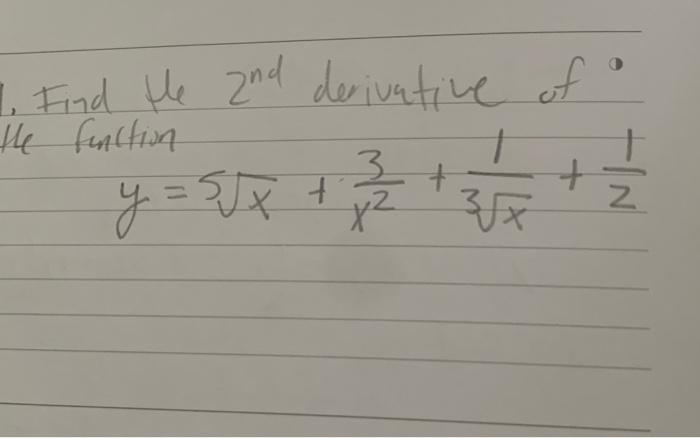 1. Find the 2nd derivative of
the function
y = 5√x + 3/x² + 1/3√x + 1/2